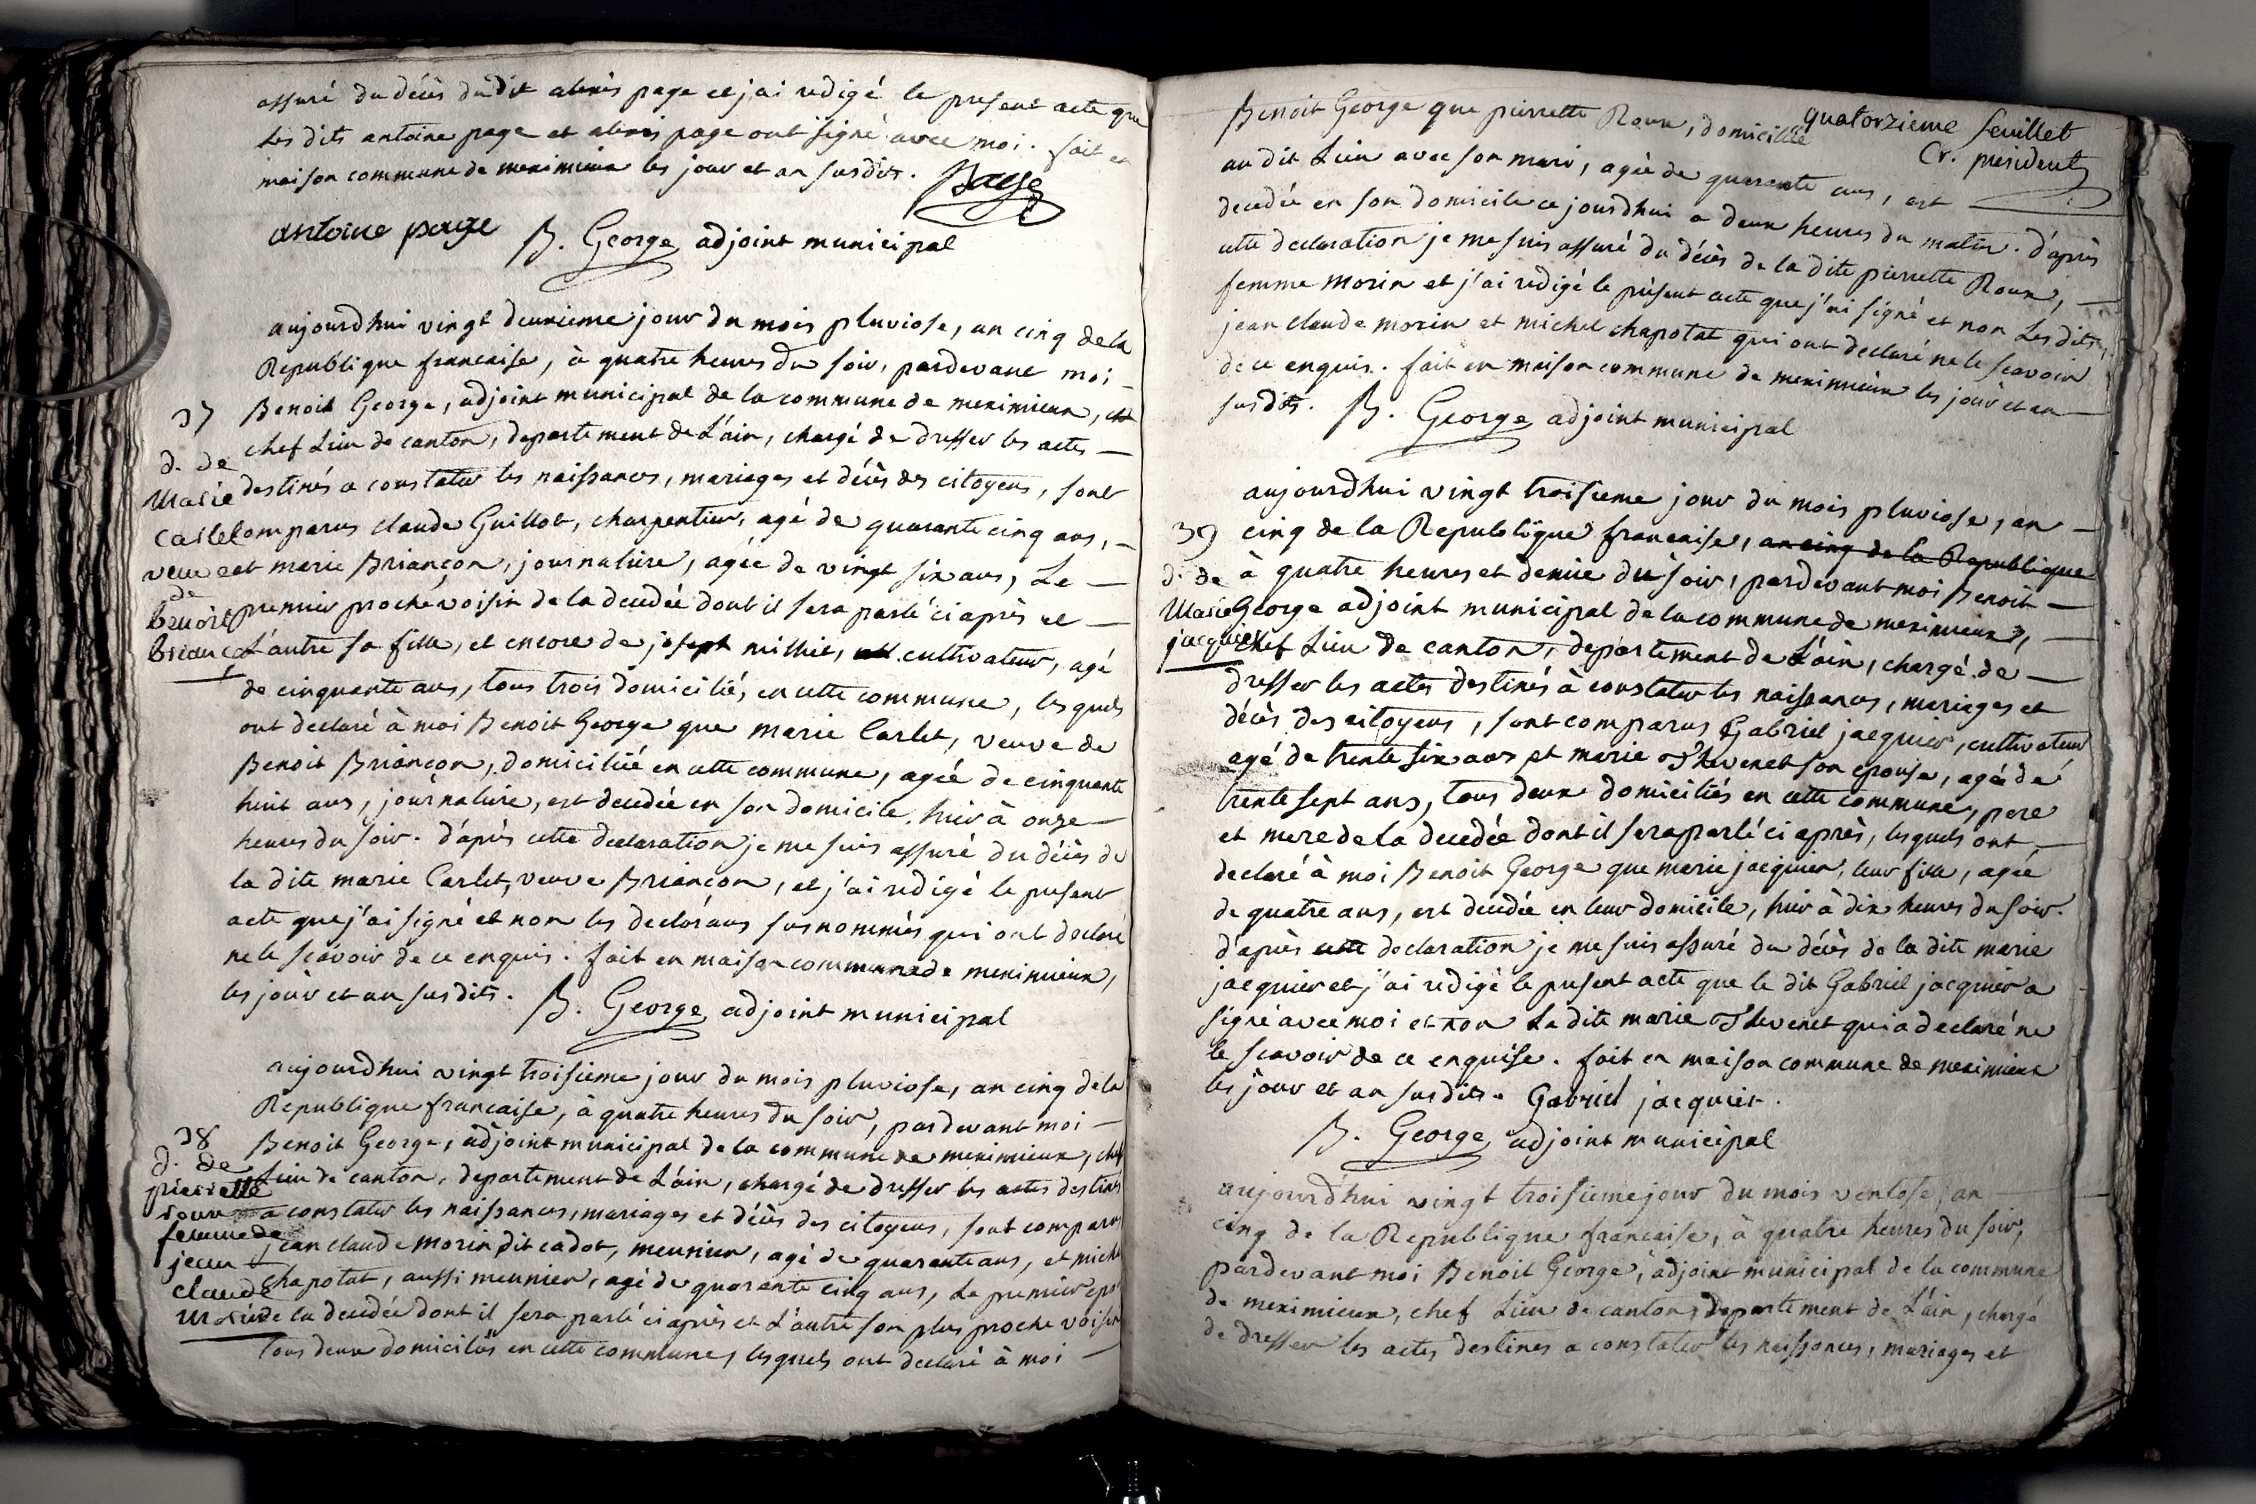 assuré du décès du dit alexis page et j'ai redigé le present acte que
les dits antoine page et alexis page ont signé avec moi. fait en
maison commune de meximieux les jour et an susdits. Page
antoine page B. George adjoint municipal
aujourdhui vingt deuxieme jour du mois pluviose, an cinq de la
Republique francaise, à quatre heures du soir, pardevant moi
Benoit George, adjoint municipal de la commune de meximieux,
chef Lieu de canton, departement de L'ain, chargé de dresser les actes
destinés a constater les naissances, mariages et décès des citoyens, sont
comparus claude Guillot, charpentier, agé de quarante cinq ans,
et marie Briançon, journaliere, agée de vingt six ans, Le
premier proche voisin de la decedée dont il sera parlé ci après et
L'autre sa fille, et encore de joseph milliet, cultivateur, agé
de cinquante ans, tous trois domiciliés en cette commune, lesquels
ont declaré à moi Benoit George que marie Carlet, veuve de
Benoit Briançon, domiciliée en cette commune, agée de cinquante
huit ans, journaliere, est decedée en son domicile, hier à onze
heures du soir. d'après cette declaration je me suis assuré du décès de
la dite marie Carlet, veuve Briançon, et j'ai redigé le present
acte que j'ai signé et non les declarans susnommés qui ont declaré
ne le scavoir de ce enquis. fait en maison commune de meximieux,
les jour et an susdits. B. George adjoint municipal
37
d. de
Marie
Carlet
veuve
de
benoit
brianço
aujourdhui vingt troisieme jour du mois pluviose, an cinq de la
Republique francaise, à quatre heures du soir, pardevant moi
Benoit George, adjoint municipal de la commune de meximieux, chef
Lieu de canton, departement de L'ain, chargé de dresser les actes destinés
a constater les naissances, mariages et décès des citoyens, sont comparus
jean claude morin dit cadot, meunier, agé de quarante ans, et michel
chapotat, aussi meunier, agé de quarante cinq ans, Le premier epoux
de la decedée dont il sera parlé ci après et L'autre son plus proche voisin
tous deux domiciliés en cette commune, lesquels ont declaré à moi
38
d. de
pierrette
roux
femme de
jean
claude
Morin
quatorzieme feuillet
Cr. president
Benoit George que pierrette Roux, domiciliée
au dit Lieu avec son mari, agée de quarante ans, est
decedée en son domicile ce jourdhui a deux heures du matin. d'après
cette declaration je me suis assuré du décès de la dite pierrette Roux,
femme morin et j'ai redigé le présent acte que j'ai signé et non Les dits
jean claude morin et michel chapotat qui ont declaré ne le scavoir
de ce enquis. fait en maison commune de meximieux les jour et an
susdits. B. George adjoint municipal
aujourdhui vingt troisieme jour du mois pluviose, an
cinq de la Republique francaise, an cinq de la Republique
à quatre heures et demie du soir, pardevant moi Benoit
George adjoint municipal de la commune de meximieux,
chef Lieu de canton, departement de L'ain, chargé de
dresser les actes destinés à constater les naissances, mariages et
décès des citoyens, sont comparus Gabriel jacquier, cultivateur
agé de trente six ans et marie Thevenet son epouse, agée de
trente sept ans, tous deux domiciliés en cette commune, pere
et mere de la decedée dont il sera parlé ci après, lesquels ont
declaré à moi Benoit George que marie jacquier, leur fille, agée
de quatre ans, est decedée en leur domicile, hier à dix heures du soir.
d'après cette declaration je me suis assuré du décès de la dite marie
jacquier et j'ai redigé le present acte que le dit Gabriel jacquier a
signé avec moi et non La dite marie Thevenet qui a declaré ne
le scavoir de ce enquise. fait en maison commune de meximieux
les jour et an susdits. Gabriel jacquier.
B. George adjoint municipal
39
d. de
Marie
jacquier
aujourd'hui vingt troisieme jour du mois ventose, an
cinq de la Republique francaise, à quatre heures du soir,
pardevant moi Benoit George, adjoint municipal de la commune
de meximieux, chef Lieu de canton, departement de L'ain, chargé
de dresser les actes destinés a constater les naissances, mariages et